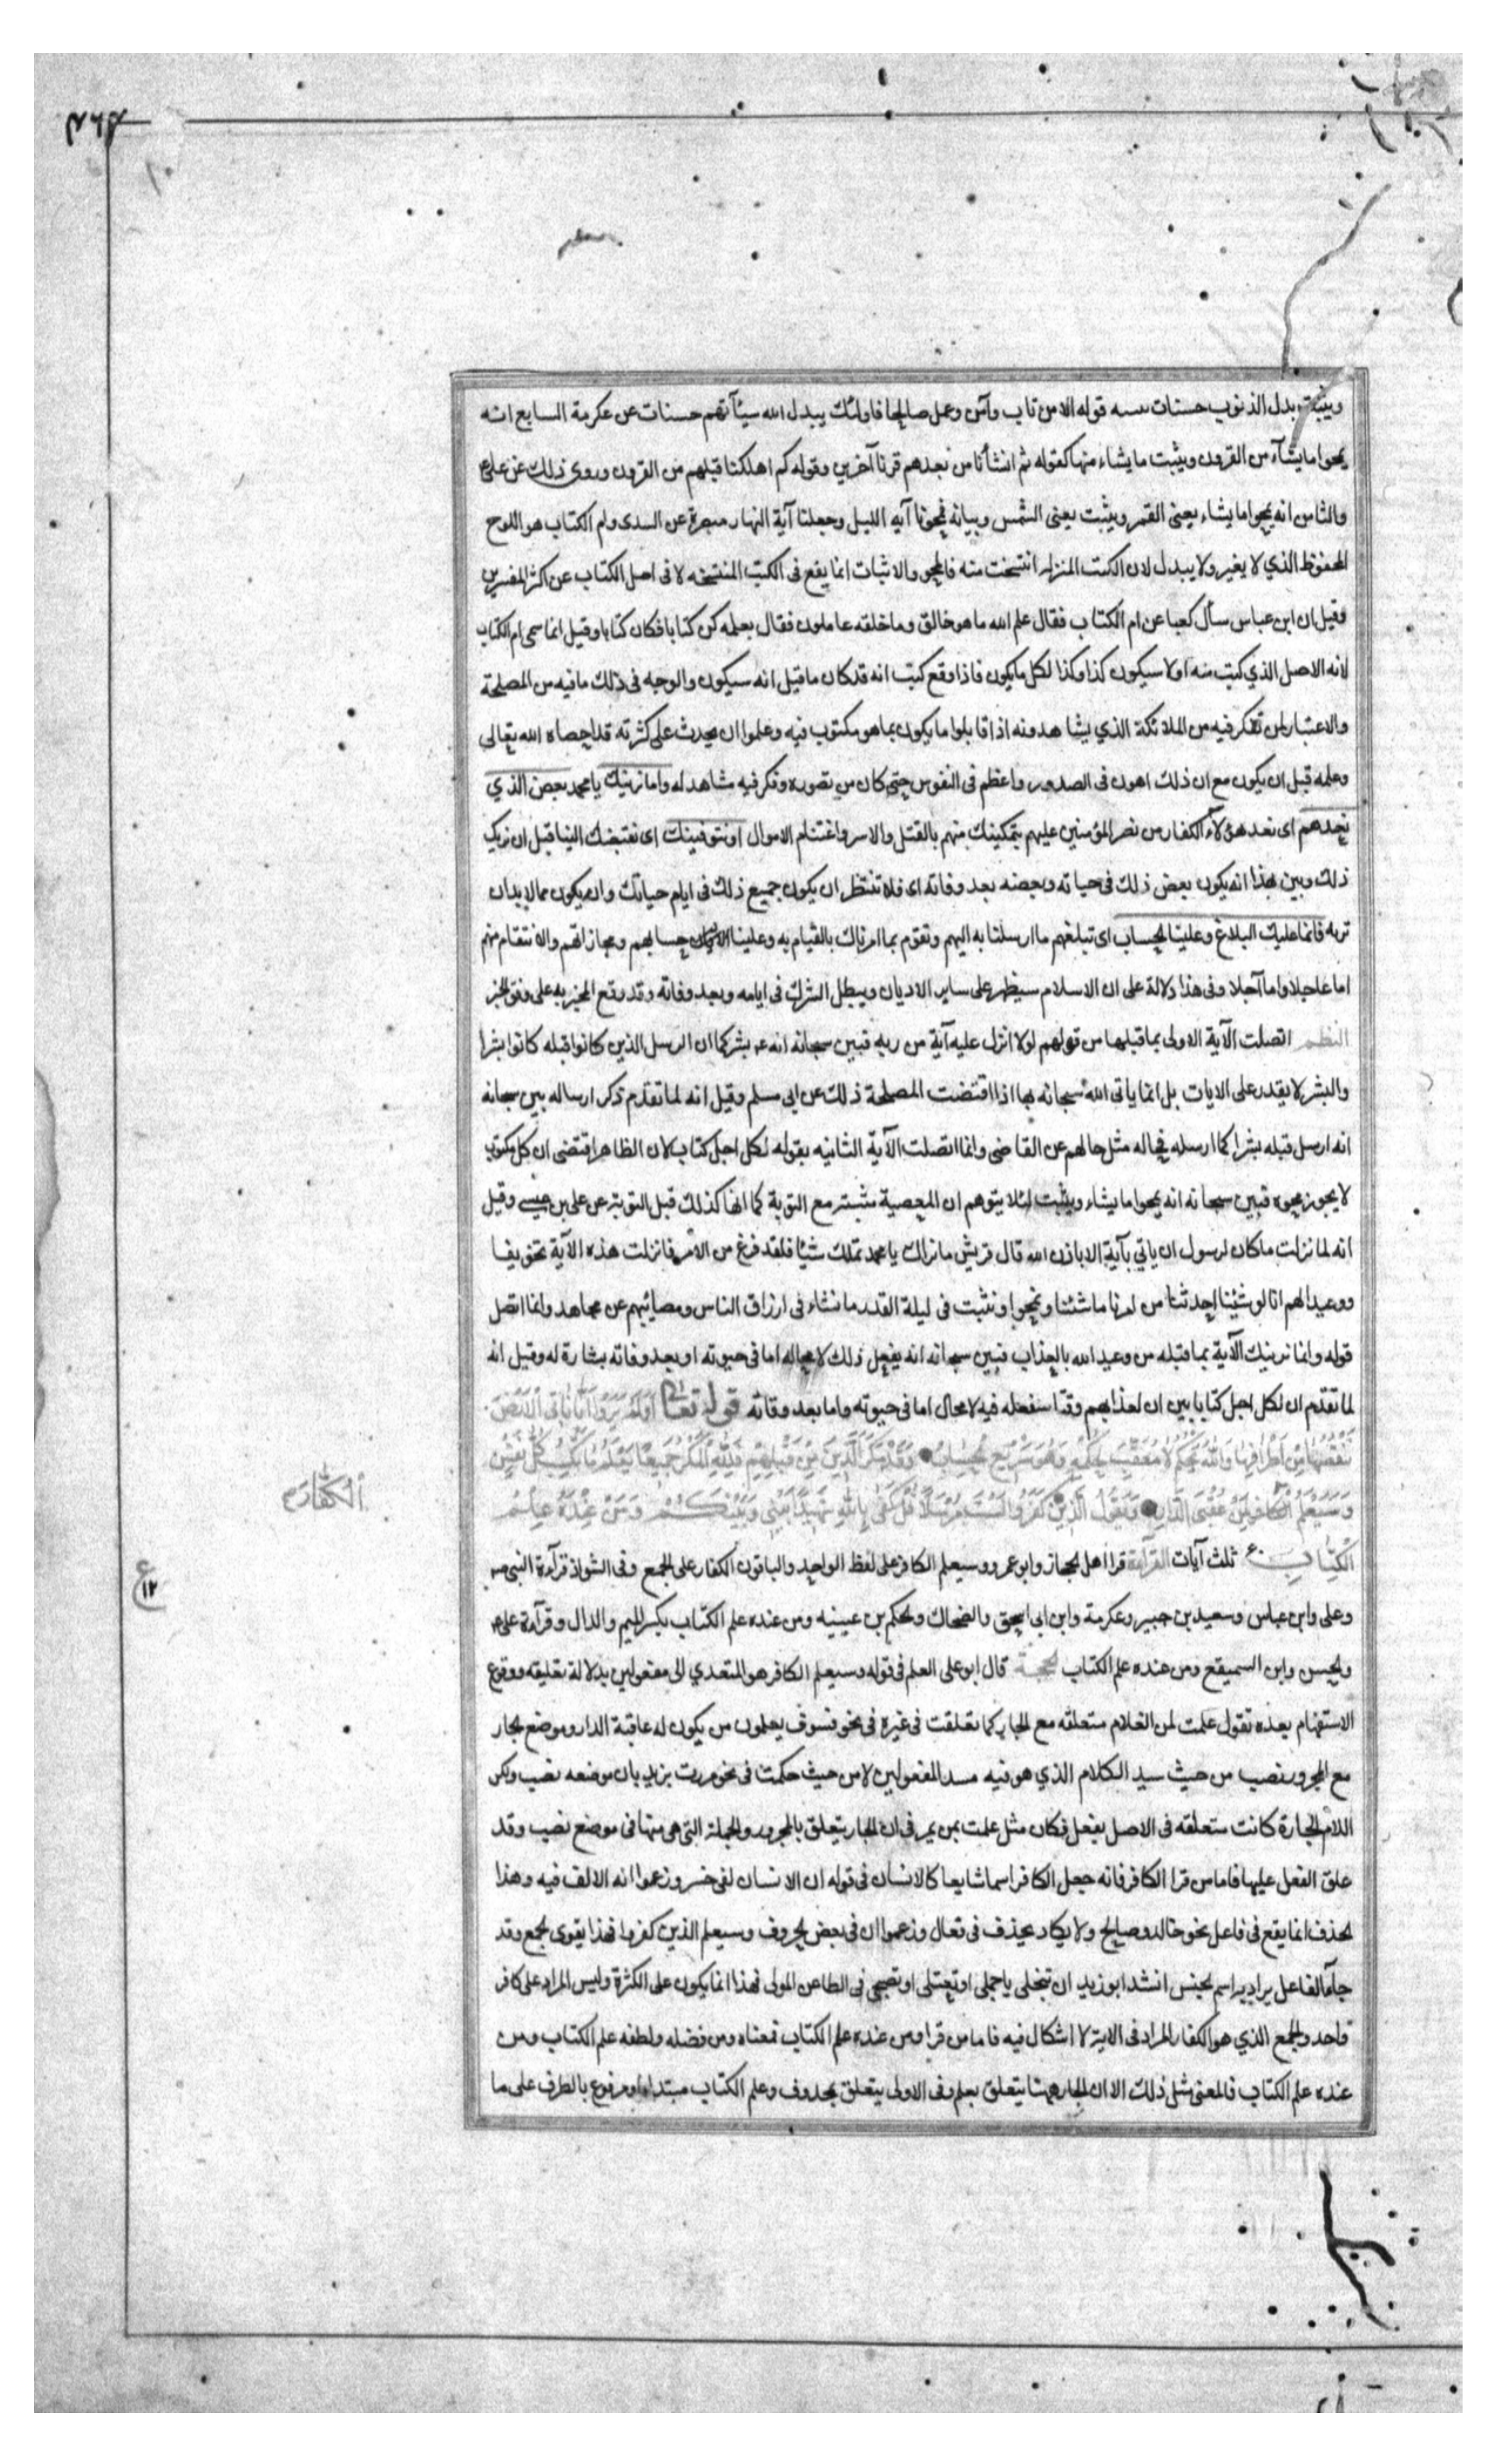 ويثبت بدل الذنوب حسنات قوله الا من تاب وآمن وعمل صالحا فاولئك يبدل الله سيئآتهم حسنات عن عكرمة السابع انه
يمحوا ما يشآء من القرون ويثبت ما يشاء منها كقوله ثم انشأنا من بعدهم قرنا آخرين وقوله كم اهلكنا قبلهم من القرون وروى ذلك عن على ع
والثامن انه يمحوا ما يشاء يعنى القمر ويثبت يعنى الشمس وبيانه فمحونا آيه الليل وجعلنا آية النهار مبصرة عن السدى وام الكتاب هو اللوح
المحفوظ الذي لا يغير ولا يبدل لان الكتب المنزله انتسخت منه فالمحو والاثبات انما يقع فى الكتب المنتسخه لا فى اصل الكتاب عن اكثر المفسرين
وقيل ان ابن عباس سأل كعبا عن ام الكتاب فقال علم الله ما هو خالق وما خلقه عاملون فقال بعلمه كن كتابا فكان كتابا وقيل انما سمى ام الكتاب
لانه الاصل الذي كتب منه اولا سيكون كذا وكذا لكل ما يكون فاذا وقع كتب انه قد كان ما قيل انه سيكون والوجه فى ذلك ما فيه من المصلحة
والاعتبار لمن تفكر فيه من الملائكة الذي يشاهدونه اذا قابلوا ما يكون بما هو مكتوب فيه وعلموا ان يحدث على كثرته قد احصاه الله تعالى
وعلمه قبل ان يكون مع ان ذلك اهون فى الصدور واعظم فى النفوس حتى كان من تصوره وفكر فيه مشاهد له واما نرينك يا محمد بعض الذي
نعدهم اى نعد هؤلآء الكفار من نصر المؤمنين عليهم بتمكينك منهم بالقتل والاسر واغتنام الاموال او نتوفينك اى نقبضك الينا قبل ان نريك
ذلك وبين بهذا انه يكون بعض ذلك فى حياته وبعضه بعد وفاته اى فلا تنتظر ان يكون جميع ذلك فى ايام حياتك وان يكون مما لابد ان
تريه فانما عليك البلاغ وعلينا الحساب اى تبلغهم ما ارسلنا به اليهم وتقوم بما امرناك بالقيام به وعلينا حسابهم ومجازاتهم والانتقام منهم
اما عاجلا واما آجلا وفى هذا دلالة على ان الاسلام سيظهر على ساير الاديان ويبطل الشرك فى ايامه وبعد وفاته وقد وقع المخبر به على وفق الخبر
النظم اتصلت الآية الاولى بما قبلها من قولهم لولا انزل عليه آية من ربه فبين سبحانه انه ع بشر كما ان الرسل الذين كانوا قبله كانوا بشرا
والبشر لا يقدر على الايات بل انما ياتى الله سبحانه بها اذا اقتضت المصلحة ذلك عن ابى مسلم وقيل انه لما تقدم ذكر ارساله بين سبحانه
انه ارسل قبله بشرا كما ارسله فحاله مثل حالهم عن القاضى وانما اتصلت الآية الثانيه بقوله لكل اجل كتاب لان الظاهر اقتضى ان كل مكتوب
لا يجوز محوه فبين سبحانه انه يمحوا ما يشاء ويثبت لئلا يتوهم ان المعصية مثبتة مع التوبة كما انها كذلك قبل التوبة عن على بن عيسى وقيل
انه لما نزلت ما كان لرسول ان ياتي بآية الا باذن الله قال قريش ما نراك يا محمد تملك شيئا فلقد فرغ من الامر فانزلت هذه الآية تخويفا
ووعيدا لهم انا لو شئنا احدثنا من امرنا ما شئنا ونمحوا ونثبت فى ليلة القدر ما نشاء فى ارزاق الناس ومصائبهم عن مجاهد وانما اتصل
قوله واما نرينك الآية بما قبله من وعيد الله بالعذاب فبين سبحانه انه يفعل ذلك لا محاله اما فى حيوته او بعد وفاته بشارة له وقيل انه
لما تقدم ان لكل اجل كتابا بين ان لعذابهم وقتا سنفعله فيه لا محال اما فى حيوته واما بعد وفاته قوله تعالى أَوَلَمْ يَرَوْا أَنَّا نَأْتِي الْأَرْضَ
نَنْقُصُهَا مِنْ أَطْرَافِهَا وَاللَّهُ يَحْكُمُ لَا مُعَقِّبَ لِحُكْمِهِ وَهُوَ سَرِيعُ الْحِسَابِ وَقَدْ مَكَرَ الَّذِينَ مِنْ قَبْلِهِمْ فَلِلَّهِ الْمَكْرُ جَمِيعًا يَعْلَمُ مَا تَكْسِبُ كُلُّ نَفْسٍ
وَسَيَعْلَمُ الْكَافِرُ لِمَنْ عُقْبَى الدَّارِ وَيَقُولُ الَّذِينَ كَفَرُوا لَسْتَ مُرْسَلًا قُلْ كَفَى بِاللَّهِ شَهِيدًا بَيْنِي وَبَيْنَكُمْ وَمَنْ عِنْدَهُ عِلْمُ
الكفار
الْكِتَابِ ع ثلث آيات القرآءة قرا اهل الحجاز وابو عمرو وسيعلم الكافر على لفظ الواحد والباقون الكفار على الجمع وفى الشواذ قرآءة النبى ص
ع
١٢
وعلى وابن عباس وسعيد بن جبير وعكرمة وابن ابى اسحق والضحاك والحكم بن عيينه ومن عنده علم الكتاب بكسر الميم والدال وقرآءة على ع
والحسن وابن السميقع ومن عنده علم الكتاب الحجة قال ابو على العلم فى قوله وسيعلم الكافر هو المتعدي الى مفعولين بدلالة تعليقه ووقوع
الاستفهام بعده تقول علمت لمن الغلام متعلقه مع الجار كما تعلقت فى غيره فى نحو فسوف يعلمون من يكون له عاقبة الدار وموضع الجار
مع المجرور نصب من حيث سد الكلام الذي هو فيه مسد المفعولين لا من حيث حكمت فى نحو مررت بزيد بان موضعه نصب ولكن
اللام الجارة كانت متعلقه فى الاصل بفعل فكان مثل علمت بمن يمر فى ان الجار يتعلق بالمجرور والجملة التى هى منها فى موضع نصب وقد
علق الفعل عليها فاما من قرا الكافر فانه جعل الكافر اسما شايعا كالانسان فى قوله ان الانسان لفى خسر وزعموا انه الالف فيه وهذا
الحذف انما يقع فى فاعل نحو خالد وصالح ولا يكاد يحذف فى فعال وزعموا ان فى بعض الحروف وسيعلم الذين كفروا فهذا يقوى الجمع وقد
جآء الفاعل يراد به اسم الجنس انشد ابو زيد ان تبخلى يا جمل او تعتلى او تصبحى فى الظاعن المولى فهذا انما يكون على الكثرة وليس المراد على كافر
واحد والجمع الذي هو الكفار المراد فى الاية لا اشكال فيه فاما من قرا ومن عنده علم الكتاب فمعناه ومن فضله ولطفه علم الكتاب ومن
عنده علم الكتاب فالمعنى مثل ذلك الا ان الجار ههنا يتعلق بعلم وفى الاولى يتعلق بمحذوف وعلم الكتاب مبتدا او مرفوع بالظرف على ما